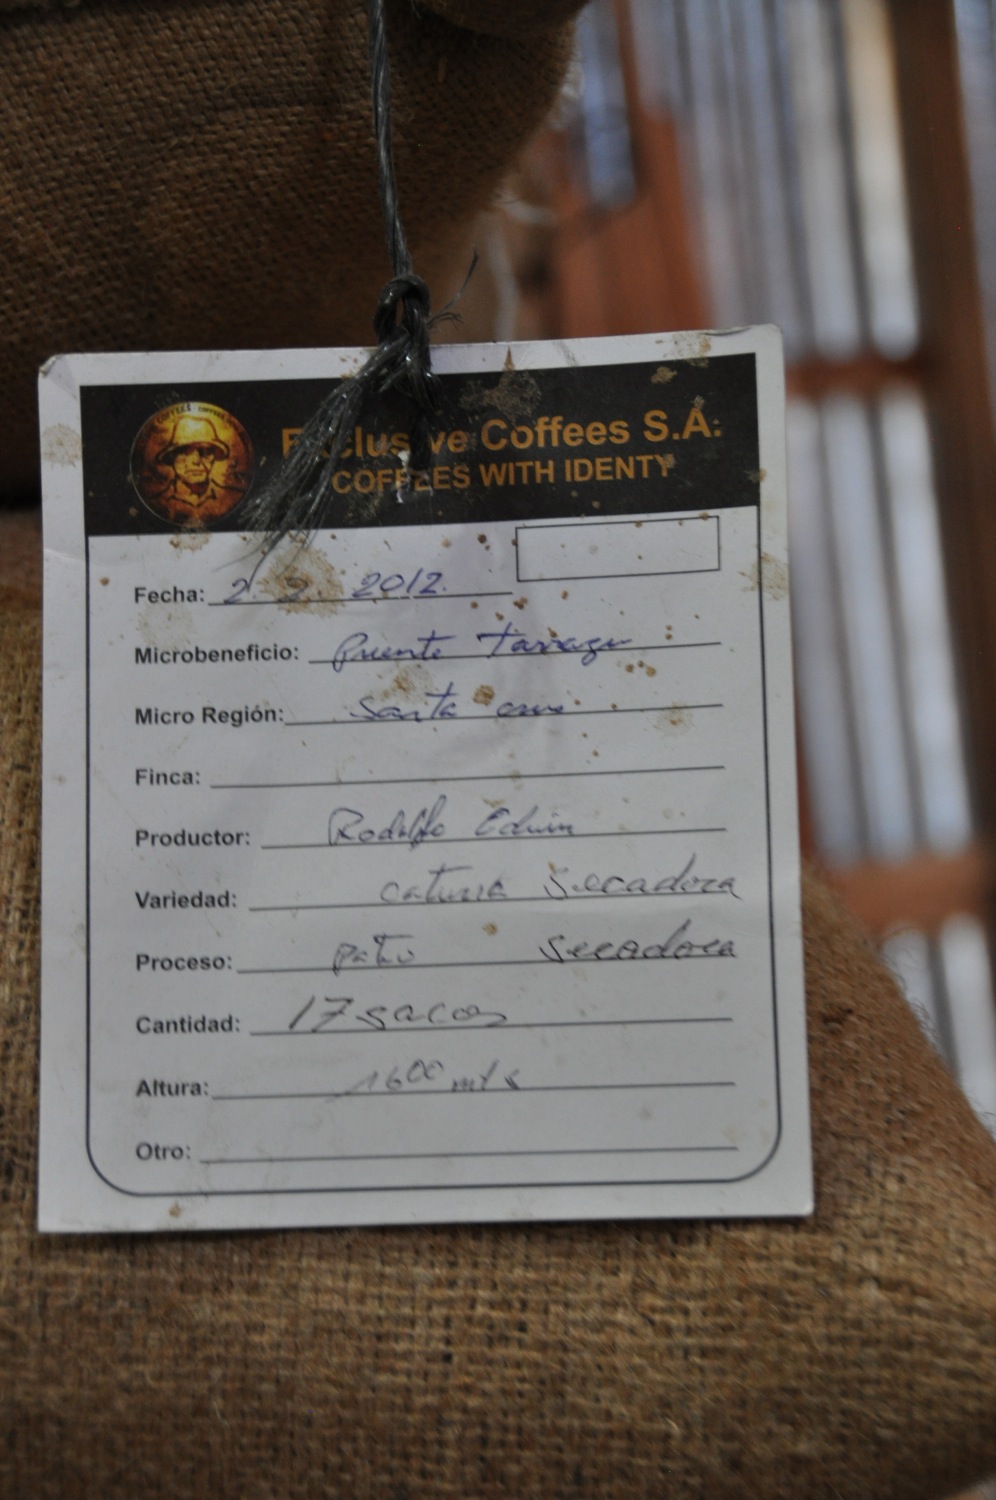 COFFEES COFFEES
Exclusive Coffees S.A.
COFFEES WITH IDENTY
Fecha: 2. 2. 2012.
Microbeneficio: Puente Tarrazu
Micro Región: Santa Cruz
Finca:
Productor: Rodolfo Edwin
Variedad: caturra Secadora
Proceso: patio Secadora
Cantidad: 17 sacos
Altura: 1600 mts
Otro: